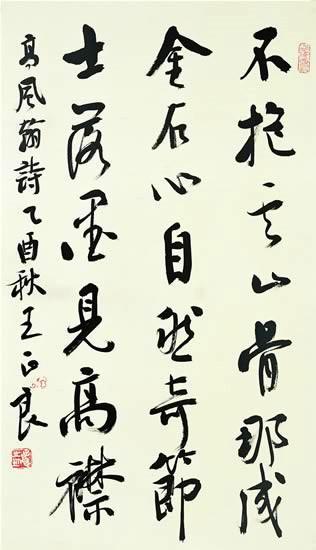 不抱云山骨那成
金石心自然奇節
士落墨見高襟
高风翰詩乙酉秋王正良